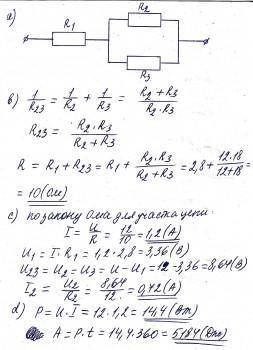 a)
R1
R2
R3
b) 1/R23 = 1/R2 + 1/R3 = (R2 + R3)/(R2 · R3)
R23 = (R2 · R3)/(R2 + R3)
R = R1 + R23 = R1 + (R2 · R3)/(R2 + R3) = 2,8 + (12·18)/(12+18) =
= 10 (Ом)
c) по закону Ома для участка цепи:
I = U/R = 12/10 = 1,2 (A)
U1 = I · R1 = 1,2 · 2,8 = 3,36 (В)
U23 = U2 = U3 = U - U1 = 12 - 3,36 = 8,64 (В)
I2 = U2/R2 = 8,64/12 = 0,72 (A)
d) P = U · I = 12 · 1,2 = 14,4 (Вт)
A = P · t = 14,4 · 360 = 5184 (Дж)